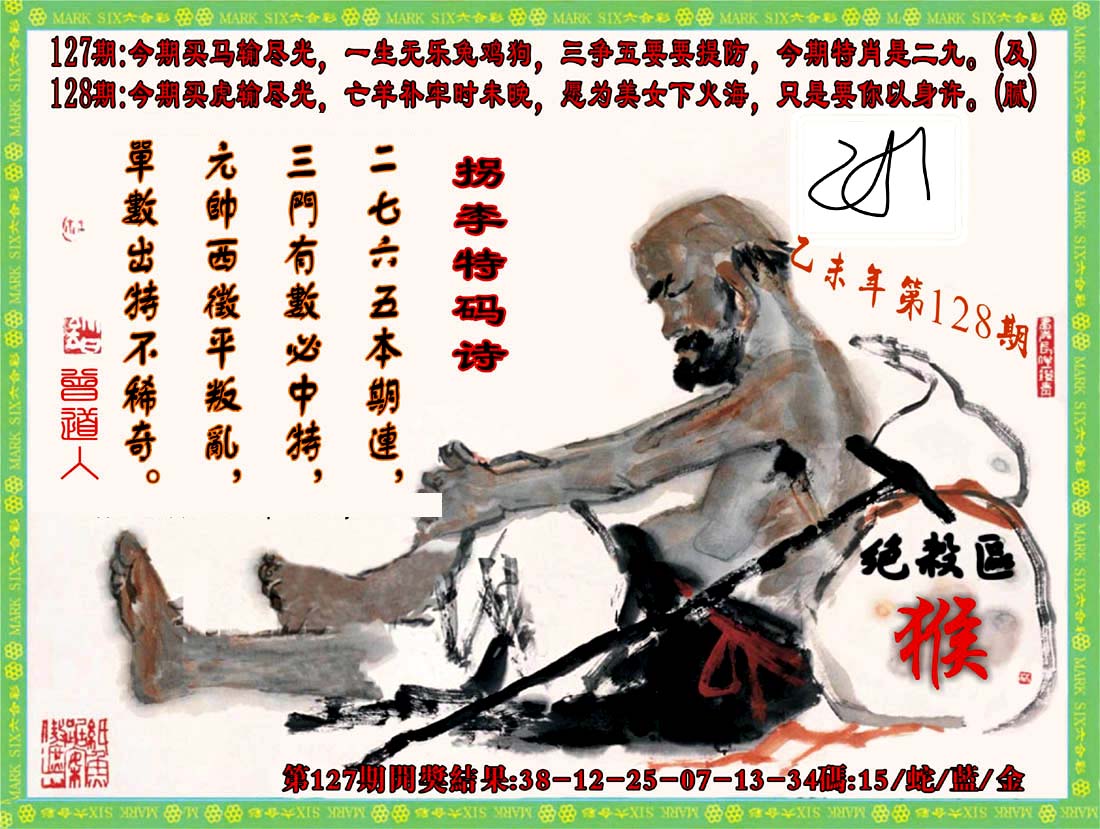 MARK SIX六合彩
127期:今期买马输尽光，一生无乐兔鸡狗，三争五要要提防，今期特肖是二九。(及)
128期:今期买虎输尽光，亡羊补牢时未晚，愿为美女下火海，只是要你以身许。(腻)
拐李特码诗
二七六五本期連，
三門有數必中特，
元帥西徵平叛亂，
單數出特不稀奇。
曾道人
乙未年第128期
绝殺區
猴
第127期開獎結果:38-12-25-07-13-34碼:15/蛇/藍/金